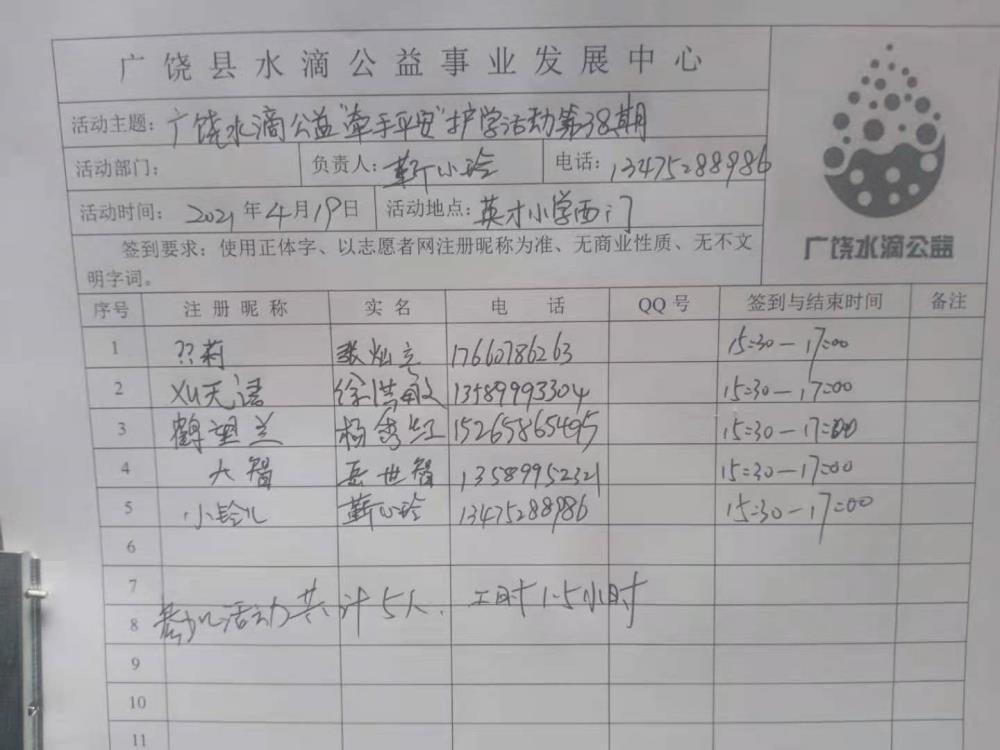 广饶县水滴公益事业发展中心
活动主题：广饶水滴公益"牵手平安"护学活动第38期
活动部门： 负责人：靳小玲 电话：13475288986
活动时间：2021年4月19日 活动地点：英才小学西门
签到要求：使用正体字、以志愿者网注册昵称为准、无商业性质、无不文
明字词。
广饶水滴公益
序号 注册昵称 实名 电话 QQ号 签到与结束时间 备注
1 ??莉 张灿立 17660786263 15:30-17:00
2 XU天诺 徐洪敏 13589993304 15:30-17:00
3 鹤望兰 杨秀红 15265865495 15:30-17:00
4 大智 岳世智 13589952321 15:30-17:00
5 小铃儿 靳小玲 13475288986 15:30-17:00
6
7
参加活动共计5人. 工时1.5小时
8
9
10
11